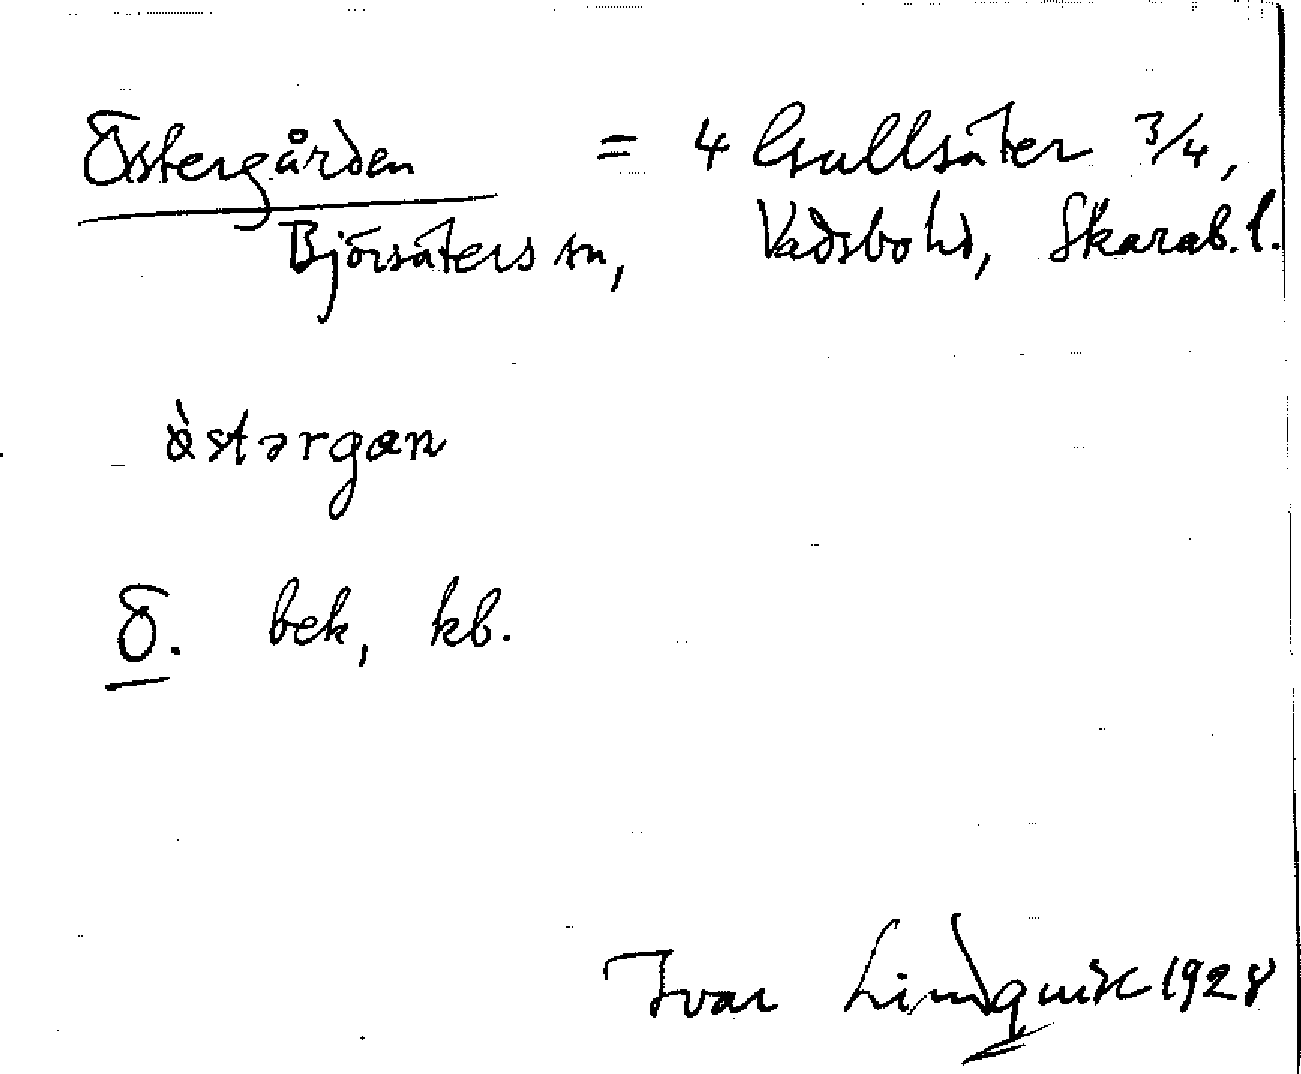 Östergården = 4 Gullsäter 3/4,
Björsäters sn, Vadsbo hd, Skarab. l.
östərgan
Ö. bek, kb.
Ivar Lindquist 1928